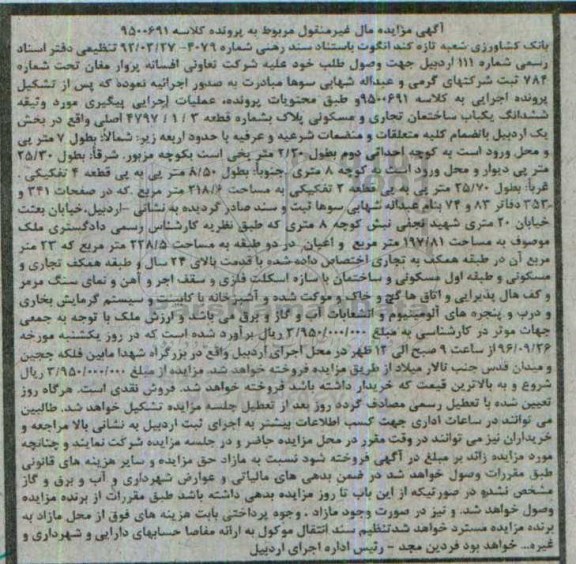 آگهی مزایده مال غیرمنقول مربوط به پرونده کلاسه ۹۵۰۰۶۹۱
بانک کشاورزی شعبه تازه کند انگوت باستناد سند رهنی شماره ۴۰۷۹-۹۲/۰۳/۲۷ تنظیمی دفتر اسناد
رسمی شماره ۱۱۱ اردبیل جهت وصول طلب خود علیه شرکت تعاونی افسانه پرواز مغان تحت شماره
۷۸۴ ثبت شرکتهای گرمی و عبداله شهابی سوها مبادرت به صدور اجرائیه نموده که پس از تشکیل
پرونده اجرایی به کلاسه ۹۵۰۰۶۹۱و طبق محتویات پرونده، عملیات اجرایی پیگیری مورد وثیقه
ششدانگ یکباب ساختمان تجاری و مسکونی پلاک بشماره قطعه ۳ / ۱ / ۴۷۹۷ اصلی واقع در بخش
یک اردبیل بانضمام کلیه متعلقات و منضمات شرعیه و عرفیه با حدود اربعه زیر: شمالا: بطول ۷ متر پی
و محل ورود است به کوچه احداثی دوم بطول ۲/۲۰ متر پخی است بکوچه مزبور. شرقا: بطول ۲۵/۳۰
متر پی دیوار و محل ورود است به کوچه ۸ متری .جنوبا: بطول ۸/۵۰ متر پی به پی قطعه ۴ تفکیکی .
غربا: بطول ۲۵/۷۰ متر پی به پی قطعه ۲ تفکیکی به مساحت ۲۱۸/۶ متر مربع .که در صفحات ۳۴۱ و
۳۵۳ دفاتر ۸۳ و ۷۴ بنام عبداله شهابی سوها ثبت و سند صادر گردیده به نشانی –اردبیل.خیابان بعثت
خیابان ۲۰ متری شهید نجفی نبش کوچه ۸ متری که طبق نظریه کارشناس رسمی دادگستری ملک
موصوف به مساحت ۱۹۷/۸۱ متر مربع و اعیان در دو طبقه به مساحت ۲۳۸/۵ متر مربع که ۲۳ متر
مربع آن در طبقه همکف به تجاری اختصاص داده شده با قدمت بالای ۲۴ سال و طبقه همکف تجاری و
مسکونی و طبقه اول مسکونی و ساختمان با سازه اسکلت فلزی و سقف اجر و آهن و نمای سنگ مرمر
و کف هال پذیرایی و اتاق ها گچ و خاک و موکت شده و آشپزخانه با کابینت و سیستم گرمایش بخاری
و درب و پنجره های آلومینیوم و انشعابات آب و گاز و برق می باشد و ارزش ملک با توجه به جمعی
جهات موثر در کارشناسی به مبلغ ۳/۹۵۰/۰۰۰/۰۰۰ ریال برآورد شده است که در روز یکشنبه مورخه
۹۶/۰۹/۲۶ از ساعت ۹ صبح الی ۱۲ ظهر در محل اجرای اردبیل واقع در بزرگراه شهدا مابین فلکه ججین
و میدان قدس جنب تالار میلاد از طریق مزایده فروخته خواهد شد. مزایده از مبلغ ۳/۹۵۰/۰۰۰/۰۰۰ ریال
شروع و به بالاترین قیمت که خریدار داشته باشد فروخته خواهد شد. فروش نقدی است. هرگاه روز
تعیین شده با تعطیل رسمی مصادف گردد روز بعد از تعطیل جلسه مزایده تشکیل خواهد شد. طالبین
می توانند در ساعات اداری جهت کسب اطلاعات بیشتر به اجرای ثبت اردبیل به نشانی بالا مراجعه و
خریداران نیز می توانند در وقت مقرر در محل مزایده حاضر و در جلسه مزایده شرکت نمایند و چنانچه
مورد مزایده زائد بر مبلغ در آگهی فروخته شود نسبت به مازاد حق مزایده و سایر هزینه های قانونی
طبق مقررات وصول خواهد شد در ضمن بدهی های مالیاتی و عوارض شهرداری و آب و برق و گاز
مشخص نشده و در صورتیکه از این باب تا روز مزایده بدهی داشته باشد طبق مقررات از برنده مزایده
وصول خواهد شد. و نیز در صورت وجود مازاد . وجوه پرداختی بابت هزینه های فوق از محل مازاد به
برنده مزایده مسترد خواهد شدتنظیم سند انتقال موکول به ارائه مفاصا حسابهای دارایی و شهرداری و
غیره... خواهد بود فردین مجد – رئیس اداره اجرای اردبیل